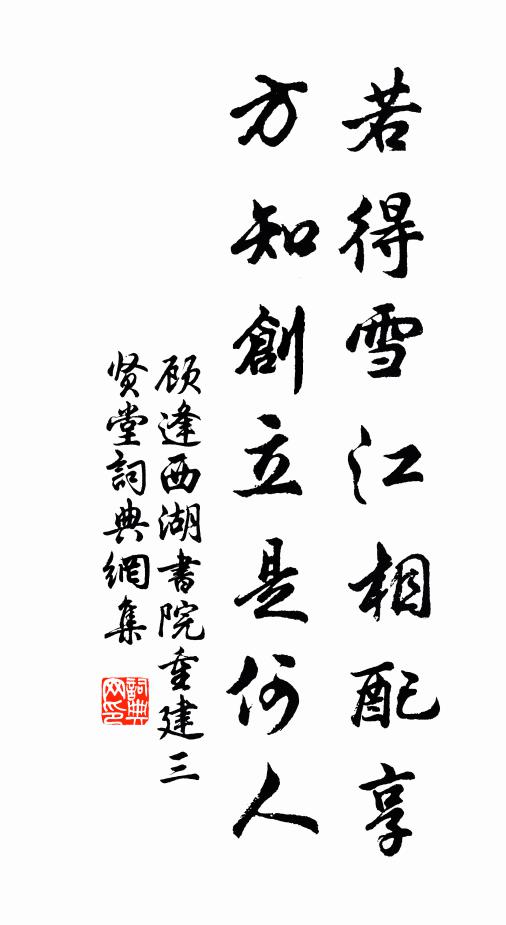 若得雪江相配享
方知創立是何人
顾逢西湖書院重建三
贤堂詞典網集
詞典
网印